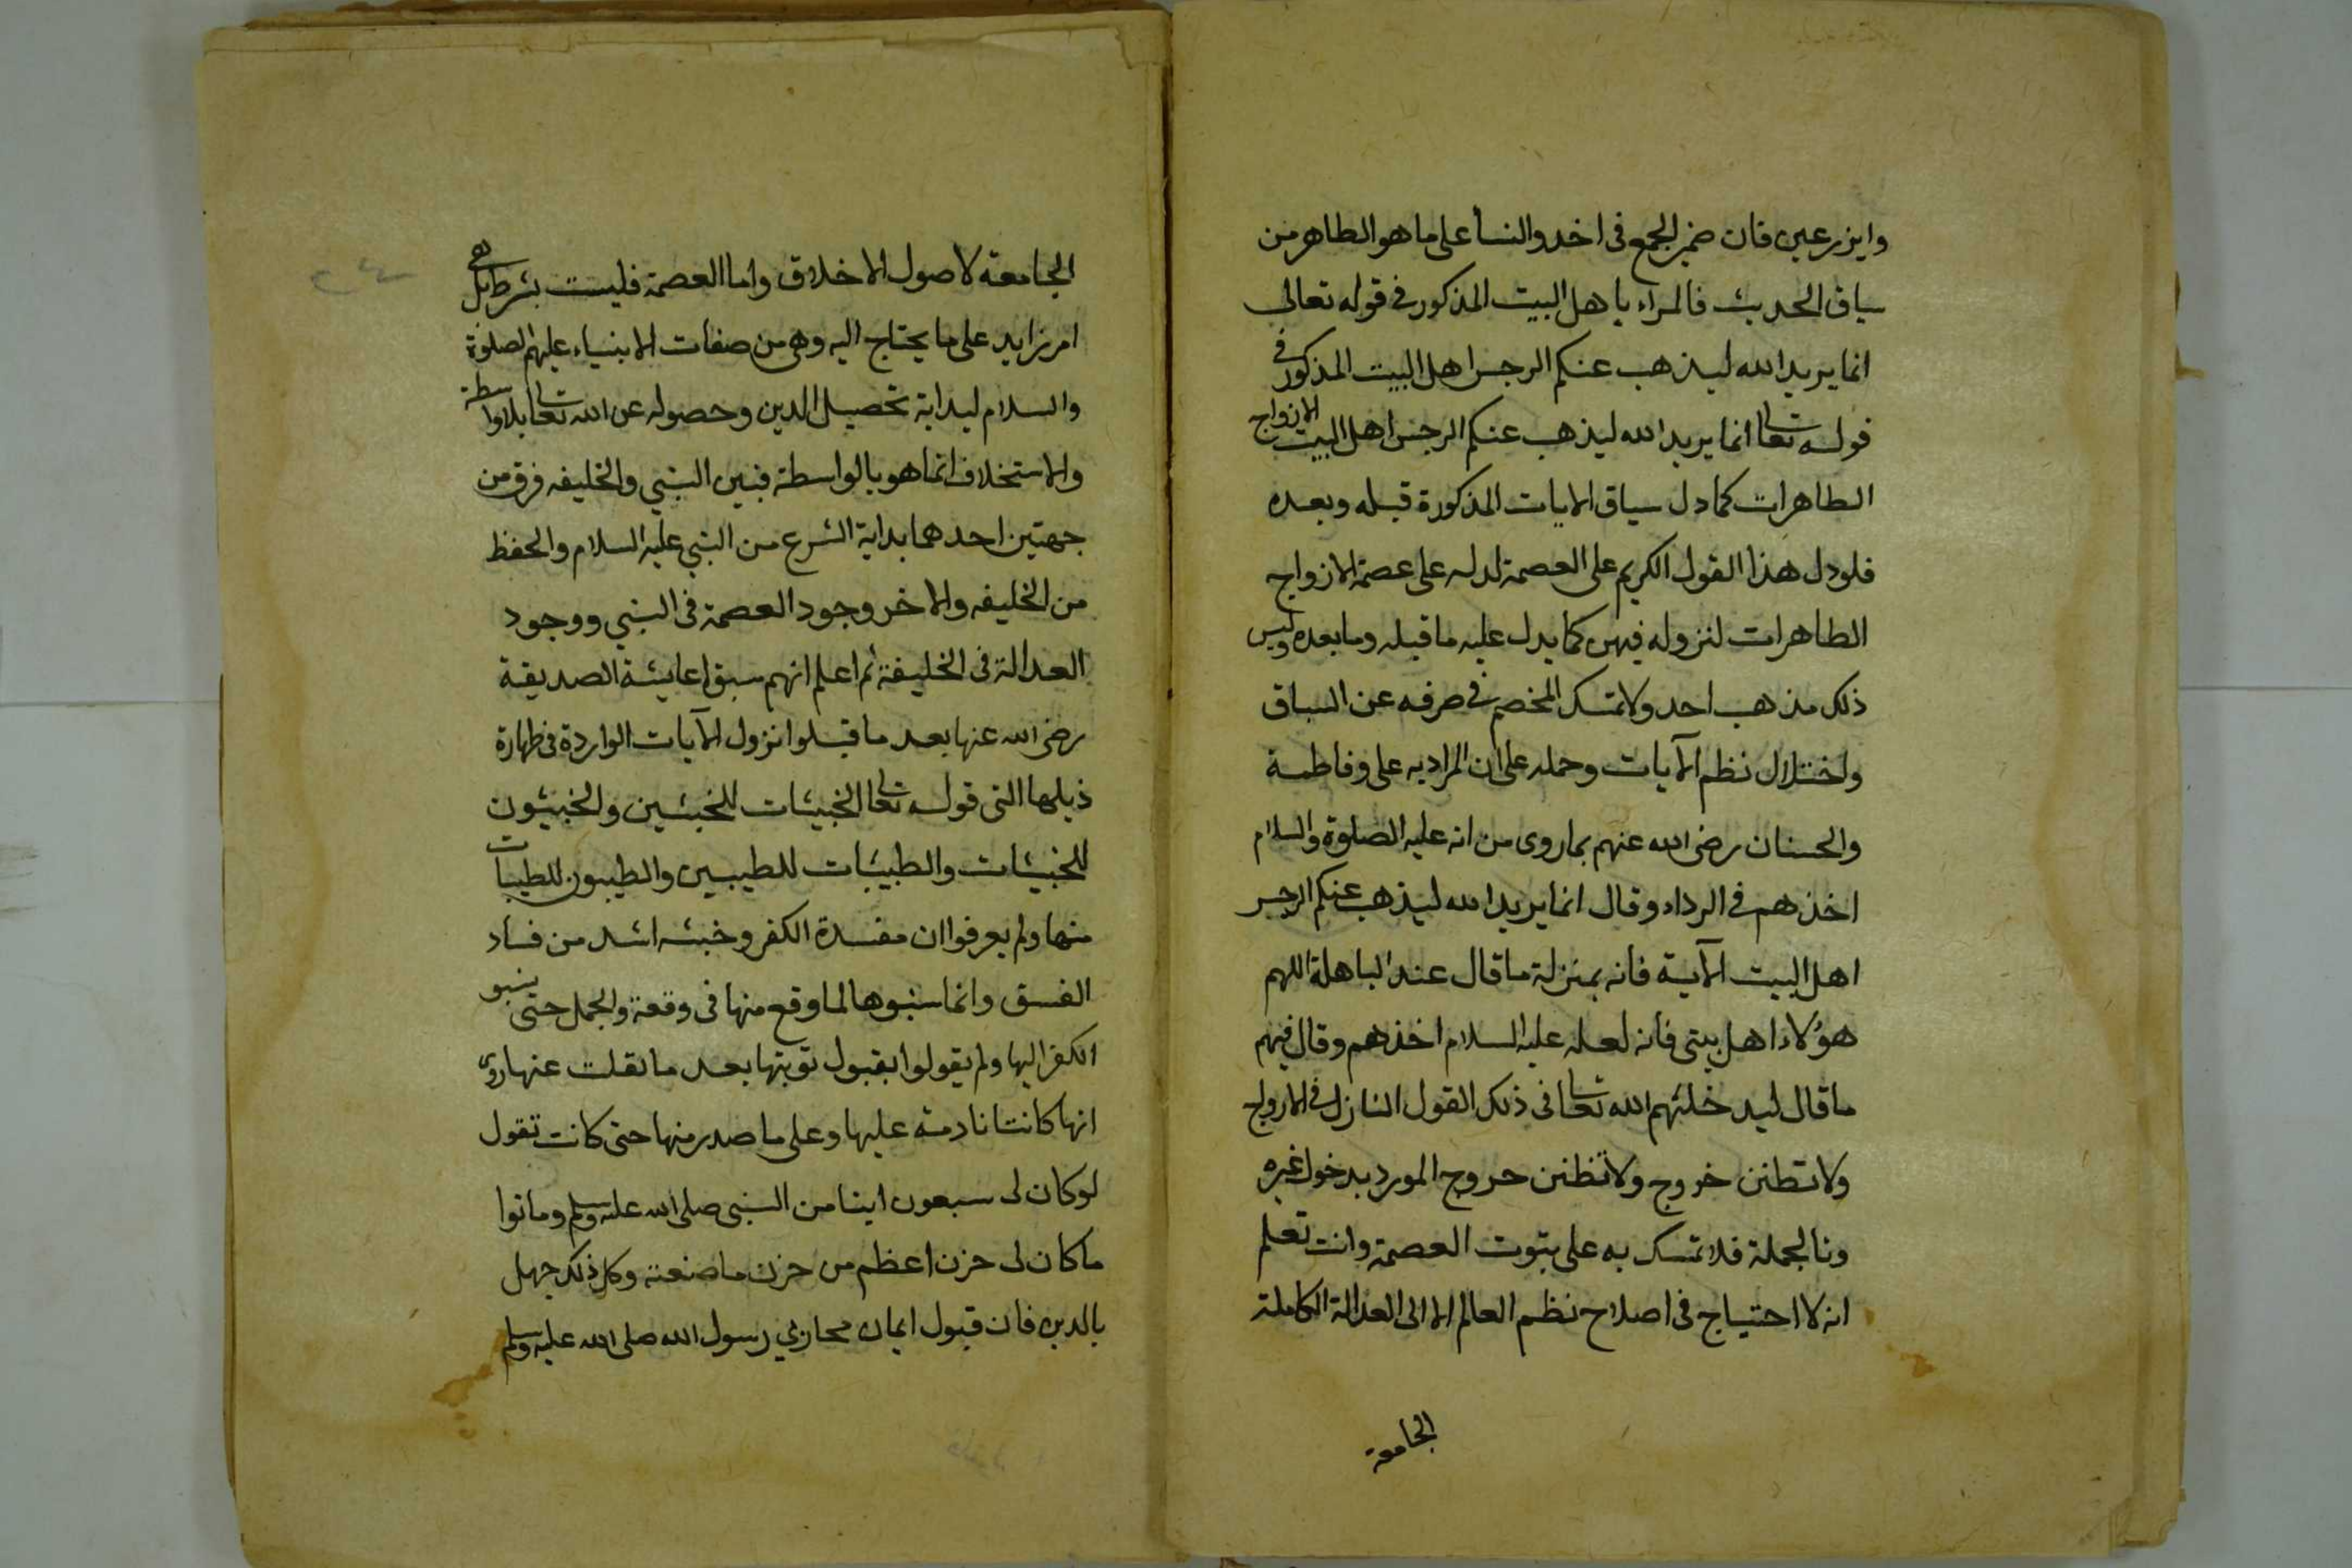 وايزرعين فان ضمير الجمع فى اخد والنسأ على ما هو الطاهر من
سياق الحديث فالمراد باهل البيت المذكور فى قوله تعالى
انما يريد الله ليذهب عنكم الرجس اهل البيت المذكور فى
قوله تعالى انما يريد الله ليذهب عنكم الرجس اهل البيت الازواج
الطاهرات كما دل سياق الايات المذكورة قبله وبعده
فلو دل هذا القول الكريم على العصمة لدله على عصمة الازواج
الطاهرات لنزوله فيهن كما يدل عليه ما قبله وما بعده وليس
ذلك مذهب احد ولا تمسك للخصم فى صرفه عن السباق
واختلال نظم الآيات وحمله على ان المراد به على وفاطمة
والحسنان رضى الله عنهم بما روى من انه عليه الصلوة والسلام
اخذهم فى الرداء وقال انما يريد الله ليذهب عنكم الرجس
اهل البيت الآية فانه بمنزلة ما قال عند الباهلة اللهم
هؤلاء اهل بيتى فانه لعله عليه السلام اخذهم وقال فيهم
ما قال ليدخلهم الله تعالى فى ذلك القول النازل فى الازواج
ولا تظنن خروج ولا تظنن خروج المورد بدخول غيره
وبالجملة فلا تمسك به على ثبوت العصمة وانت تعلم
انه لا احتياج فى اصلاح نظم العالم الا الى العدالة الكاملة
الجامعة
الجامعة لاصول الاخلاق واما العصمة فليست بشرط بل هى
امر زايد على ما يحتاج اليه وهى من صفات الانبياء عليهم الصلوة
والسلام لبداية تحصيل الدين وحصوله عن الله تعالى بلا واسطة
والاستخلاف انما هو بالواسطة فبين النبي والخليفه فرق من
جهتين احدهما بداية الشرع من النبي عليه السلام والحفظ
من الخليفه والاخر وجود العصمة فى النبي ووجود
العدالة فى الخليفة ثم اعلم انهم سبقوا عايشة الصديقة
رضى الله عنها بعد ما قبلوا نزول الآيات الواردة فى طهارة
ذيلها التى قوله تعالى الخبيثات للخبيثين والخبيثون
للخبيثات والطيبات للطيبين والطيبون للطيبات
منها ولم يعرفوا ان مفسدة الكفر وخبثه اشد من فساد
الفسق وانما سبوها لما وقع منها فى وقعة والجمل حتى ينسبو
الكفر اليها ولم يقولوا بقبول توبتها بعد ما نقلت عنها روى
انها كانتا نادمة عليها وعلى ما صدر منها حتى كانت تقول
لو كان لى سبعون ابنا من النبى صلى الله عليه وسلم وماتوا
ما كان لى حزن اعظم من حزن ما صنعته وكل ذلك جهل
بالدين فان قبول ايمان محاربي رسول الله صلى الله عليه وسلم